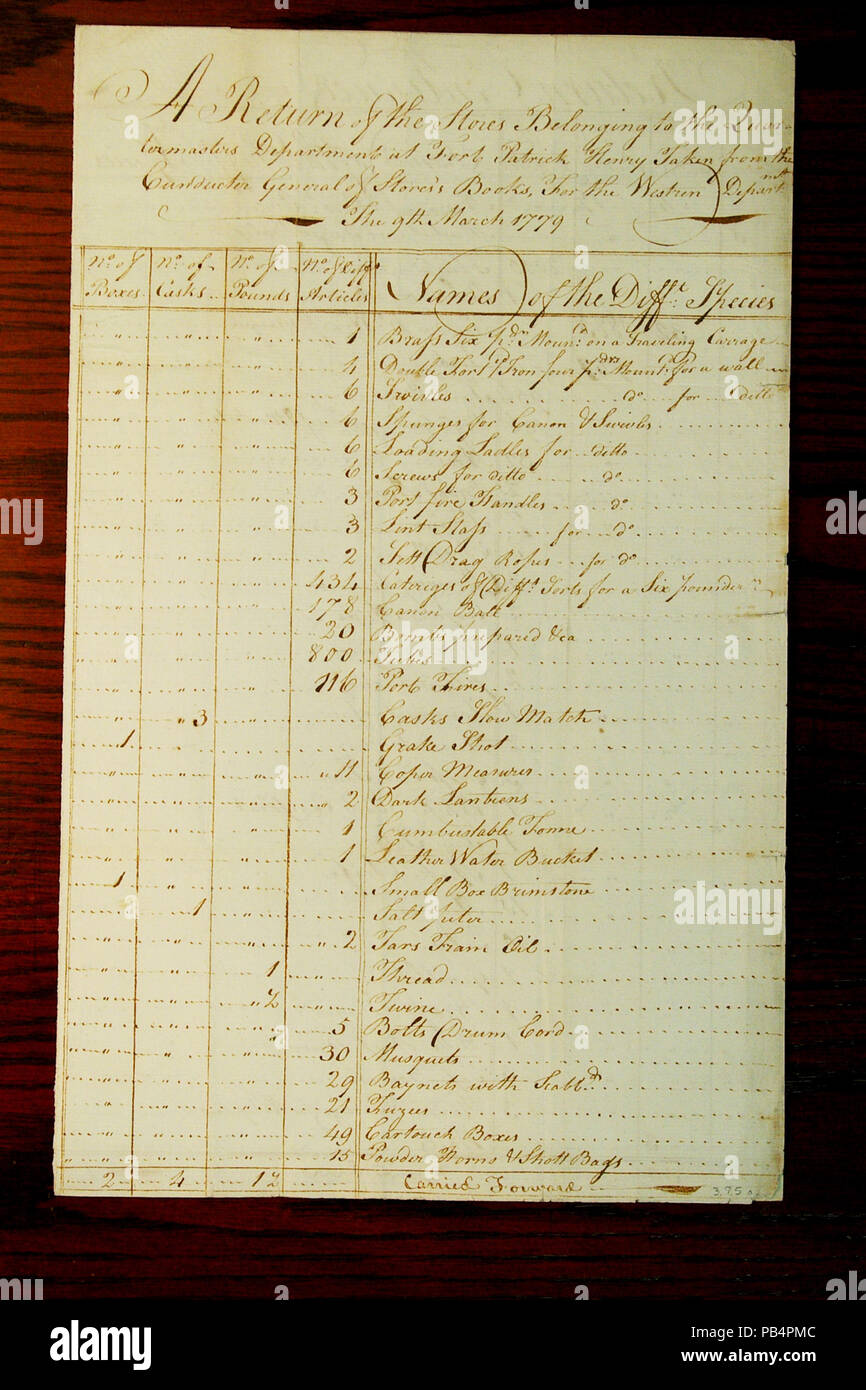 A Return of the Stores Belonging to the Quar-
termasters Department at Fort Patrick Henry Taken from the
Cunductor General of Stores's Books, For the Westren Departmt
The 9th March 1779
No. of Boxes No. of Casks No. of Pounds No. of Diffe Articles Names of the Diffe. Species
1 Brass Six pdr. Mound on a Traveling Carrage
4 Double Fortd. Iron four pdrs. Mountd. for a wall
6 Swivles do for ditto
6 Spunges for Canon & Swivles
6 Loading Ladles for ditto
6 Screws for ditto do
3 Port fire Handles do
3 Lint Stafs for do
2 Sett Drag Ropes for do
434 Cateriges of Difft. Sorts for a Six pounder
178 Canon Ball
20 Bombs prepared &ca
800 Tubes
116 Port Fires
3 Casks Slow Match
1 Grake Shot
11 Coper Measures
2 Dark Lantrens
1 Cumbustable
1 Leather Water Bucket
1 Small Box Brimstone
1 Salt peter
2 Jars Train Oil
1 Thread
2 Twine
5 Bolts Drum Cord
30 Musquets
29 Baynets with Scabbd
21 Fuzees
49 Cartouch Boxes
15 Powder Horns & Shott Bags
2 4 12 Carried Forward
375
a
alamy
alamy stock photo
PB4PMC
www.alamy.com